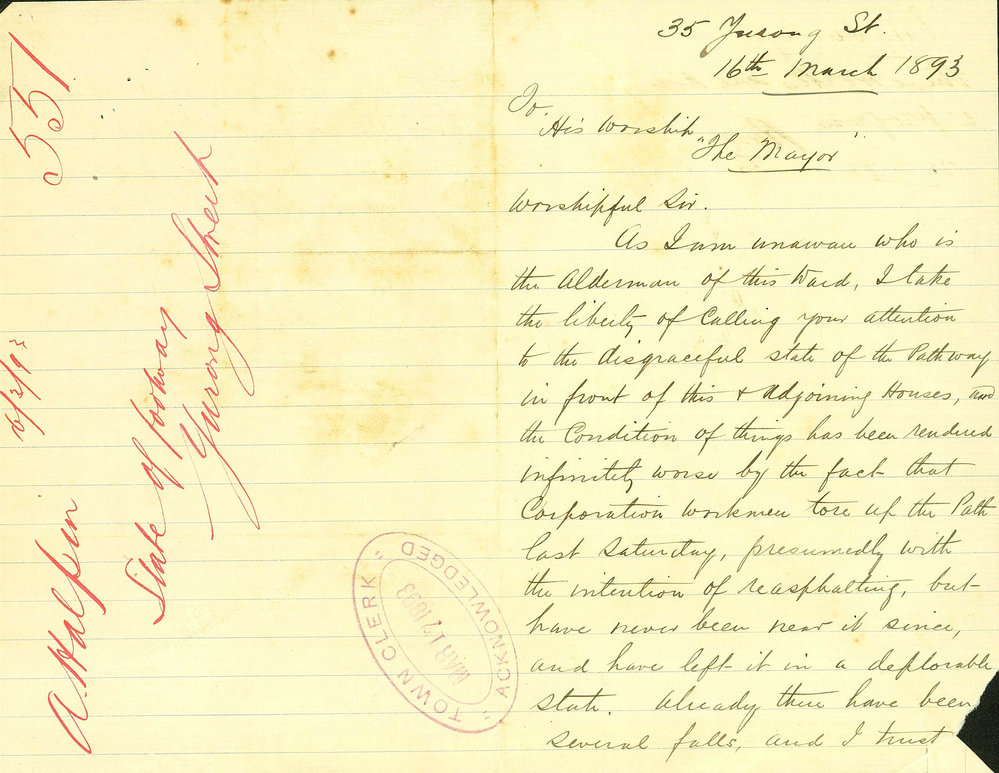 551
16/3/93
A. Halpin
State of footway
Yurong Street
"TOWN CLERK"
MAR 17 1893
"ACKNOWLEDGED"
35 Yurong St.
16th March 1893
To,
His Worship
"The Mayor"
Worshipful Sir.
As I am unaware who is
the Alderman of this Ward, I take
the liberty of Calling your attention
to the disgraceful state of the Pathway
in front of this & adjoining Houses, and
the Condition of things has been rendered
infinitely worse by the fact that
Corporation workmen tore up the Path
last Saturday, presumedly with
the intention of reasphalting, but
have never been near it since,
and have left it in a deplorable
state. Already there have been
several falls, and I trust